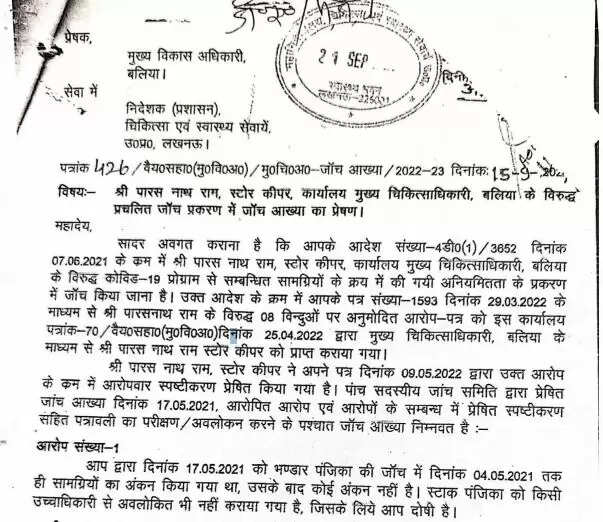 प्रेषक,
मुख्य विकास अधिकारी,
बलिया।
सेवा में
निदेशक (प्रशासन),
चिकित्सा एवं स्वास्थ्य सेवायें,
उ०प्र०, लखनऊ।
21 SEP
स्वास्थ्य भवन
लखनऊ-226001
पत्रांक 426/वैय०सहा०(मु०वि०अ०)/मु०चि०अ०-जॉच आख्या/2022-23 दिनांक: 15-9-
विषयः- श्री पारस नाथ राम, स्टोर कीपर, कार्यालय मुख्य चिकित्साधिकारी, बलिया के विरूद्ध
प्रचलित जॉच प्रकरण में जॉच आख्या का प्रेषण।
महादेय,
सादर अवगत कराना है कि आपके आदेश संख्या-4डी0(1)/3652 दिनांक
07.06.2021 के क्रम में श्री पारस नाथ राम, स्टोर कीपर, कार्यालय मुख्य चिकित्साधिकारी, बलिया
के विरुद्ध कोविड-19 प्रोग्राम से सम्बन्धित सामग्रियों के क्रय में की गयी अनियमितता के प्रकरण
में जॉच किया जाना है। उक्त आदेश के क्रम में आपके पत्र संख्या-1593 दिनांक 29.03.2022 के
माध्यम से श्री पारसनाथ राम के विरुद्ध 08 विन्दुओं पर अनुमोदित आरोप-पत्र को इस कार्यालय
पत्रांक-70/वैय०सहा०(मु०वि०अ०)दिनांक 25.04.2022 द्वारा मुख्य चिकित्साधिकारी, बलिया के
माध्यम से श्री पारस नाथ राम स्टोर कीपर को प्राप्त कराया गया।
श्री पारस नाथ राम, स्टोर कीपर ने अपने पत्र दिनांक 09.05.2022 द्वारा उक्त आरोप
के क्रम में आरोपवार स्पष्टीकरण प्रेषित किया गया है। पांच सदस्यीय जांच समिति द्वारा प्रेषित
जांच आख्या दिनांक 17.05.2021, आरोपित आरोप एवं आरोपों के सम्बन्ध में प्रेषित स्पष्टीकरण
सहित पत्रावली का परीक्षण/अवलोकन करने के पश्चात जॉच आख्या निम्नवत है :-
आरोप संख्या-1
आप द्वारा दिनांक 17.05.2021 को भण्डार पंजिका की जॉच में दिनांक 04.05.2021 तक
ही सामग्रियों का अंकन किया गया था, उसके बाद कोई अंकन नहीं है। स्टाक पंजिका को किसी
उच्चाधिकारी से अवलोकित भी नहीं कराया गया है, जिसके लिये आप दोषी है।